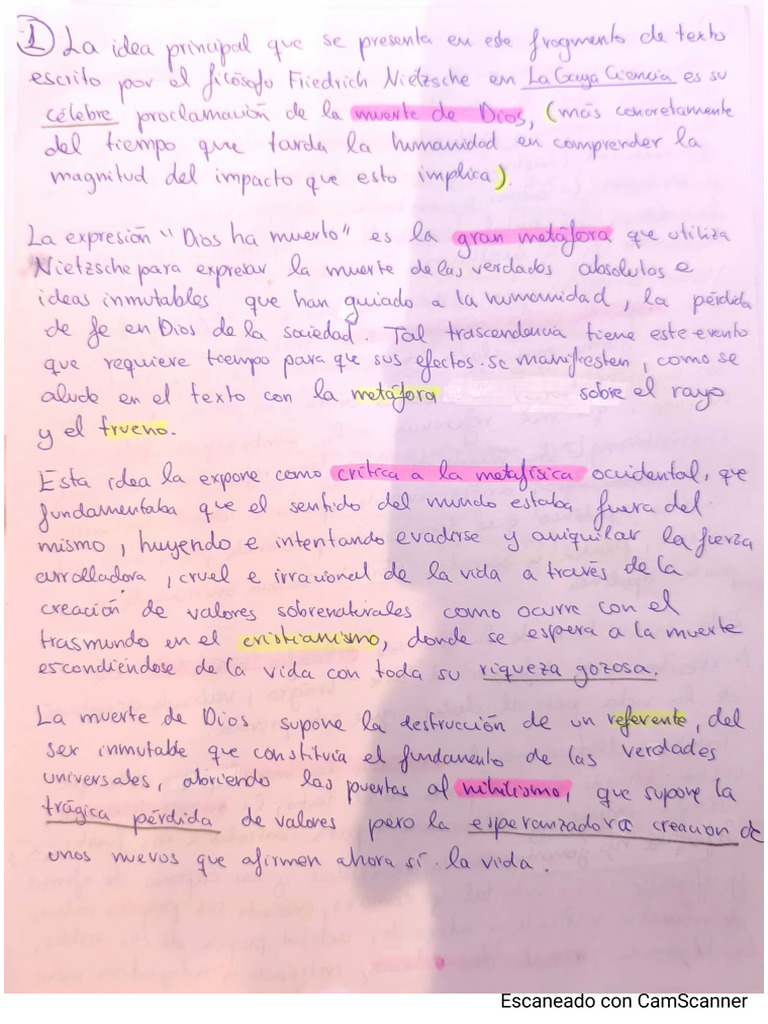 ① La idea principal que se presenta en este fragmento de texto
escrito por el filósofo Friedrich Nietzsche en La Gaya Ciencia es su
célebre proclamación de la muerte de Dios, (más concretamente
del tiempo que tarda la humanidad en comprender la
magnitud del impacto que esto implica).
La expresión "Dios ha muerto" es la gran metáfora que utiliza
Nietzsche para expresar la muerte de las verdades absolutas e
ideas inmutables que han guiado a la humanidad, la pérdida
de fe en Dios de la sociedad. Tal trascendencia tiene este evento
que requiere tiempo para que sus efectos se manifiesten, como se
alude en el texto con la metáfora sobre el rayo
y el trueno.
Esta idea la expone como crítica a la metafísica occidental, que
fundamentaba que el sentido del mundo estaba fuera del
mismo, huyendo e intentando evadirse y aniquilar la fuerza
arrolladora, cruel e irracional de la vida a través de la
creación de valores sobrenaturales como ocurre con el
trasmundo en el cristianismo, donde se espera a la muerte
escondiéndose de la vida con toda su riqueza gozosa.
La muerte de Dios supone la destrucción de un referente, del
ser inmutable que constituía el fundamento de las verdades
universales, abriendo las puertas al nihilismo, que supone la
trágica pérdida de valores pero la esperanzadora creación de
unos nuevos que afirmen ahora sí la vida.
Escaneado con CamScanner